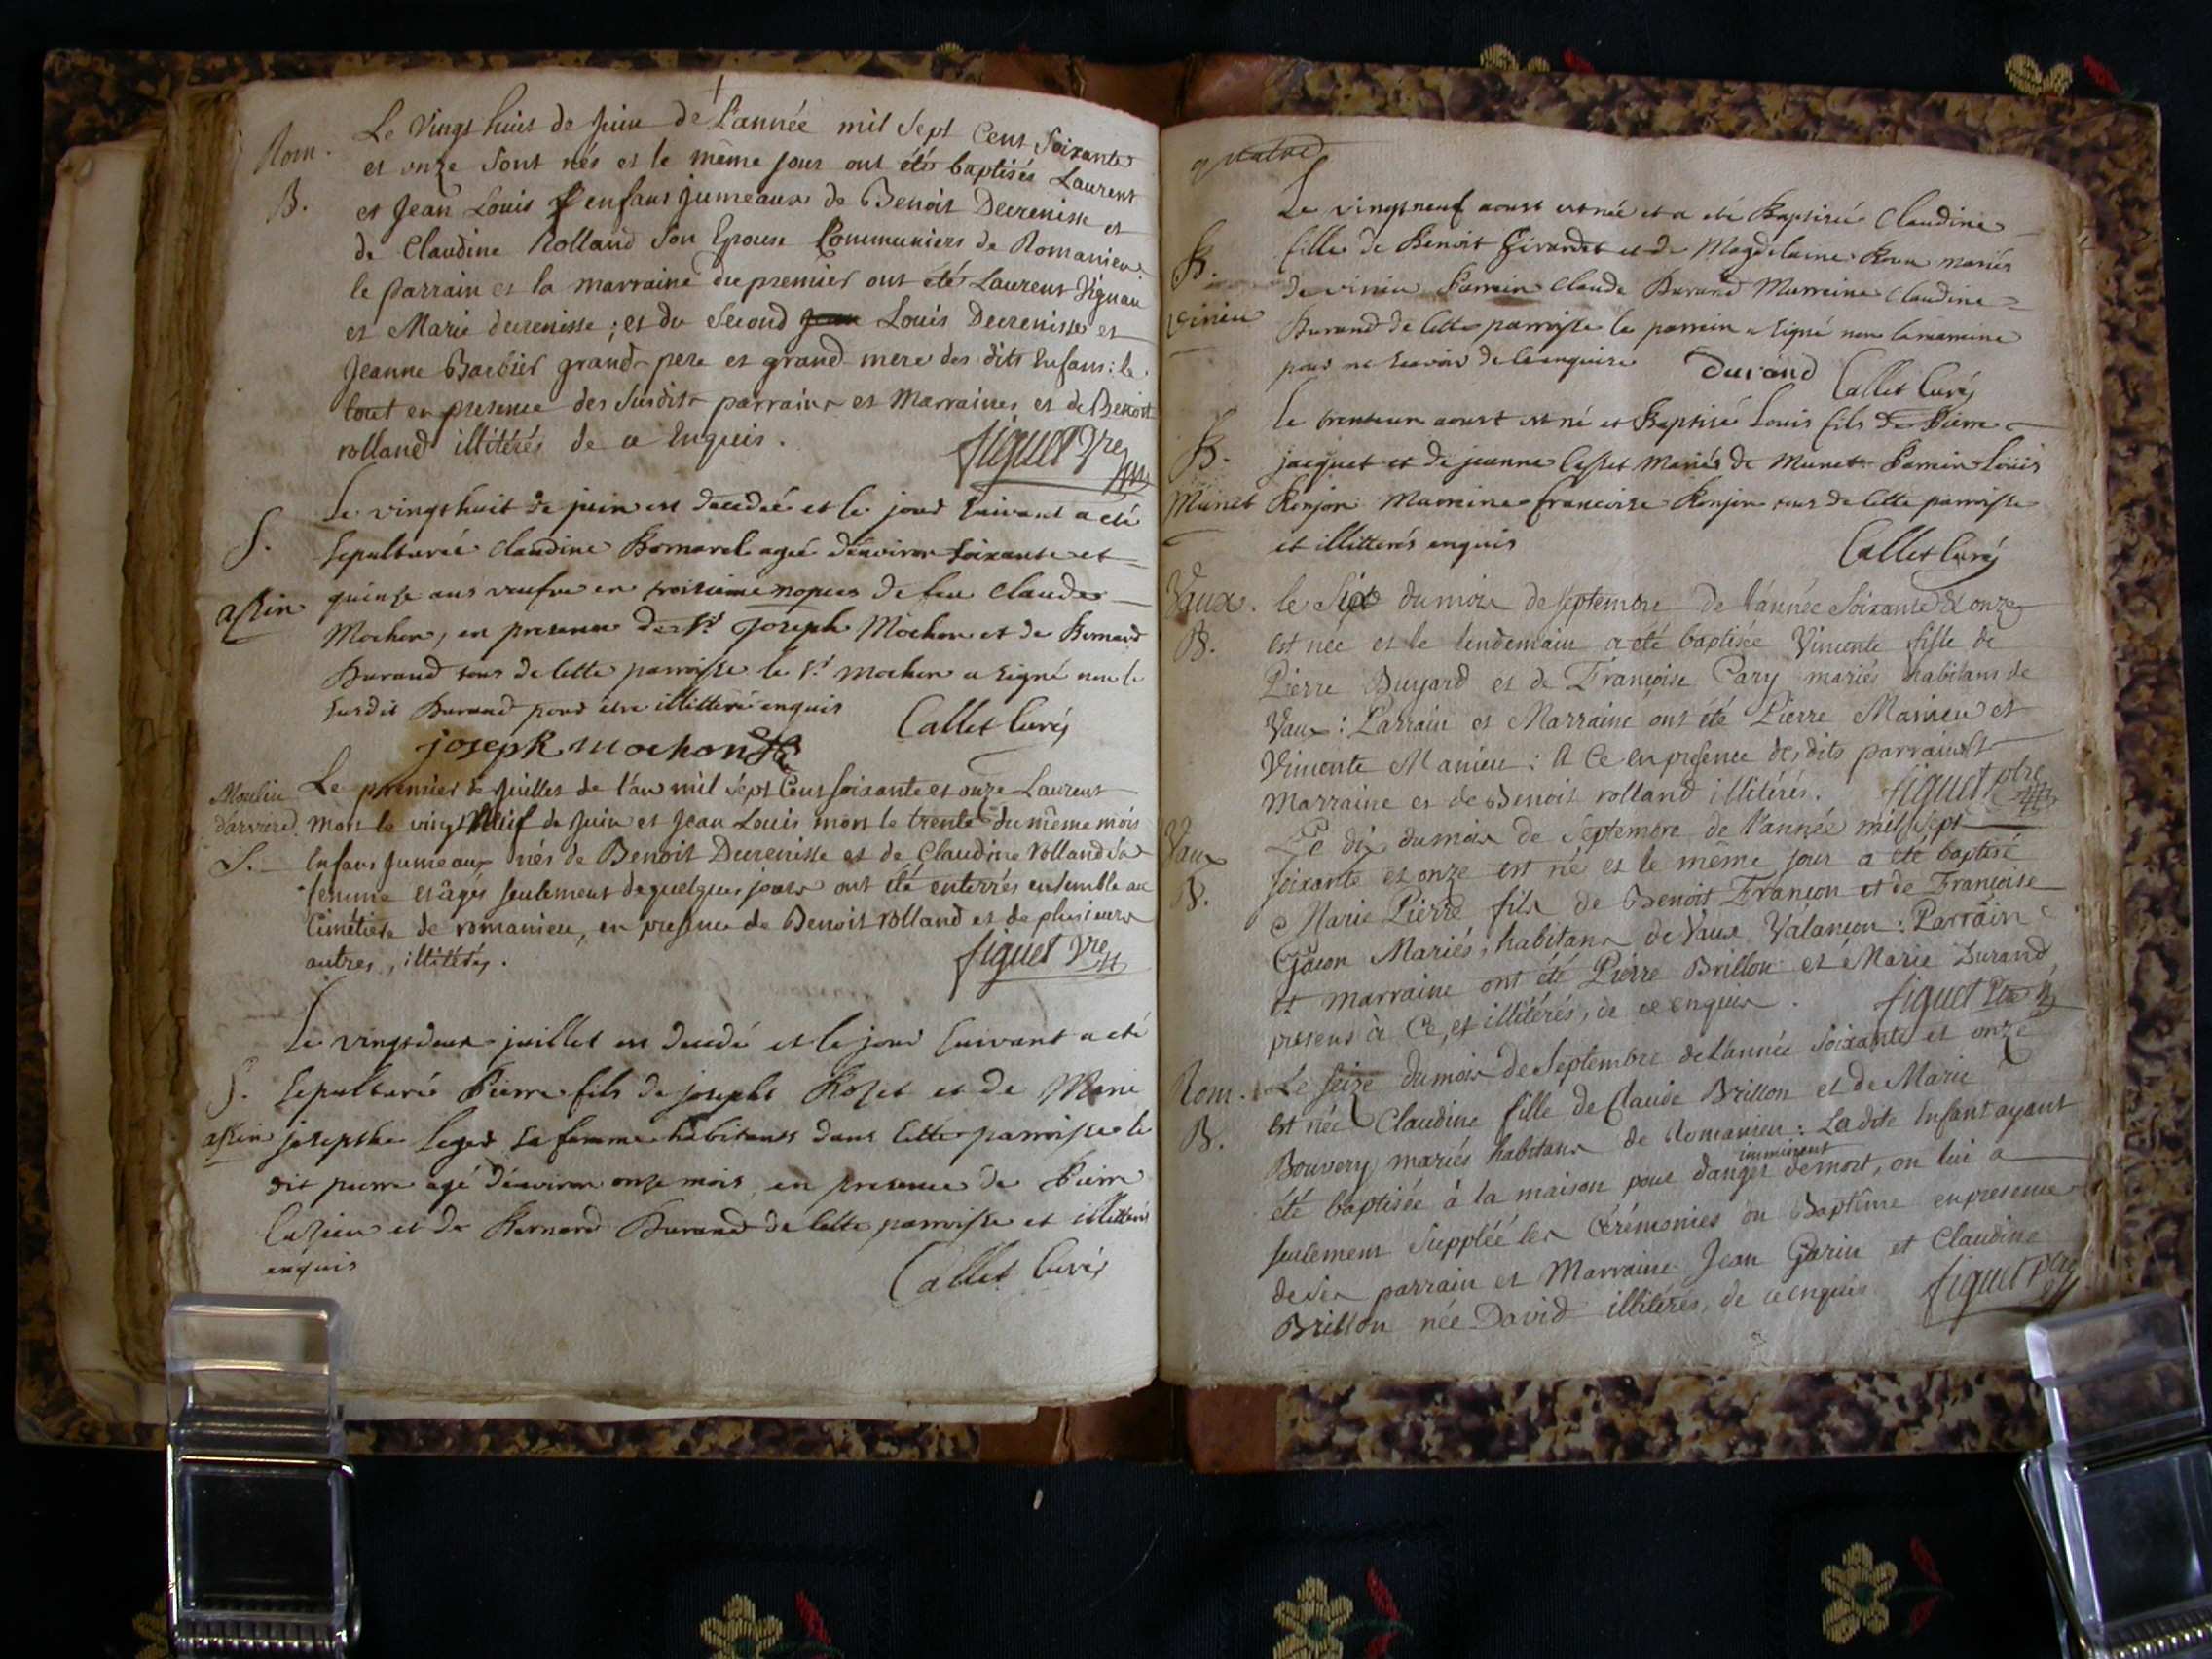 Rom. Le vingt huit de juin de l'année mil sept cent soixante
et onze sont nés et le même jour ont été baptisés Laurent
B. et Jean Louis enfans jumeaux de Benoit Decrenisse et
de Claudine Rolland son Epouse Communiers de Romanieu.
le parrain et la marraine du premier ont été Laurent
et Marie decrenisse ; et du second Louis Decrenisse et
Jeanne Barbier grand-pere et grand-mere des dits Enfans : le
tout en presence des susdits parrains et Marraines et de Benoit
rolland illitérés de ce Enquis. figuet Ptre
Le vingt huit de juin est decedée et le jour suivant a été
S. sepulturée Claudine Bomarel ageé d'environ soixante et
assin quinze ans veufve en troisieme nopces de feu Claude
Mochon, en presence de sr. Joseph Mochon et de Bernard
Durand tous de cette parroisse le sr. mochon a signé non le
susdit Durand pour etre illitteré enquis Callet Curé
joseph mochon
Moulin Le premier de juillet de l'an mil sept Cent soixante et onze Laurent
d'arriere. Mort le vingt Neuf de juin et Jean Louis mort le trente du même mois
S. Enfans jumeaux nés de Benoit Decrenisse et de Claudine rolland sa
femme et âgés seulement de quelques jours ont été enterrés ensemble au
Cimétiere de romanieu, en presence de Benoit rolland et de plusieurs
autres, illitérés. figuet Ptre
Le vingt deux juillet est decedé et le jour suivant a été
S. sepulturé Pierre fils de joseph Rozet et de Marie
assin josepthe Leger sa femme habitants dans cette parroisse le
dit pierre agé d'environ onze mois, en presence de Pierre
Cuzieu et de Bernard Durand de cette parroisse et illitterés
enquis Callet Curé
Le vingt neuf aoust est née et a été Baptisée Claudine
B. fille de Benoit Girardet et de Magdelaine Roux mariés
vinieu de vinieu Parrain Claude Durand Marreine Claudine
Durand de cette parroisse le parrain a signé non la marreine
pour ne scavoir de ce enquise Durand Callet Curé
Le trente un aoust est né et Baptisé Louis fils de Pierre
B. jacquet et de jeanne Cesset Mariés de Munet Parrein Loüis
Munet Konjon Marreine francoise Konjon tous de cette parroisse
et illitterés enquis Callet Curé
Vaux. le Six du mois de septembre de l'année soixante & onze
B. est nee et le lendemain a été baptisée Vincente fille de
Pierre Buyard et de Françoise Cary mariés habitans de
Vaux : Parrain et Marraine ont été Pierre Manieu et
Vincente Manieu : A Ce en presence des dits parrain et
Marraine et de Benoit rolland illitérés. figuet ptre
Vaux Le dix du mois de Septembre de l'année mil sept
B. soixante et onze est né et le même jour a été baptisé
Marie Pierre fils de Benoit Françon et de Françoise
Gacon Mariés, habitans de Vaux Valançon : Parrain
et marraine ont été Pierre Brillon et Marie Durand
presens à Ce, et illitérés, de ce enquis. figuet Ptre
Rom. Le seize du mois de Septembre de l'année soixante et onze
B. est née Claudine fille de Claude Brillon et de Marie
Bouvery mariés habitans de Romanieu : Ladite Enfant ayant
imminent
été baptisée à la maison pour danger de mort, on lui a
seulement suppléé les Cérémonies du Baptême en presence
de ses parrain et Marraine Jean Garin et Claudine
Brillon née David illitérés, de ce enquis figuet ptre